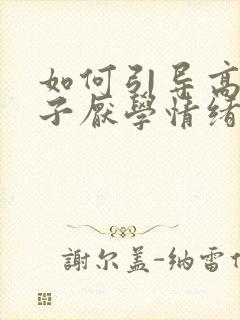 如何引导高
子厌學情绪
謝尔盖-纳雷